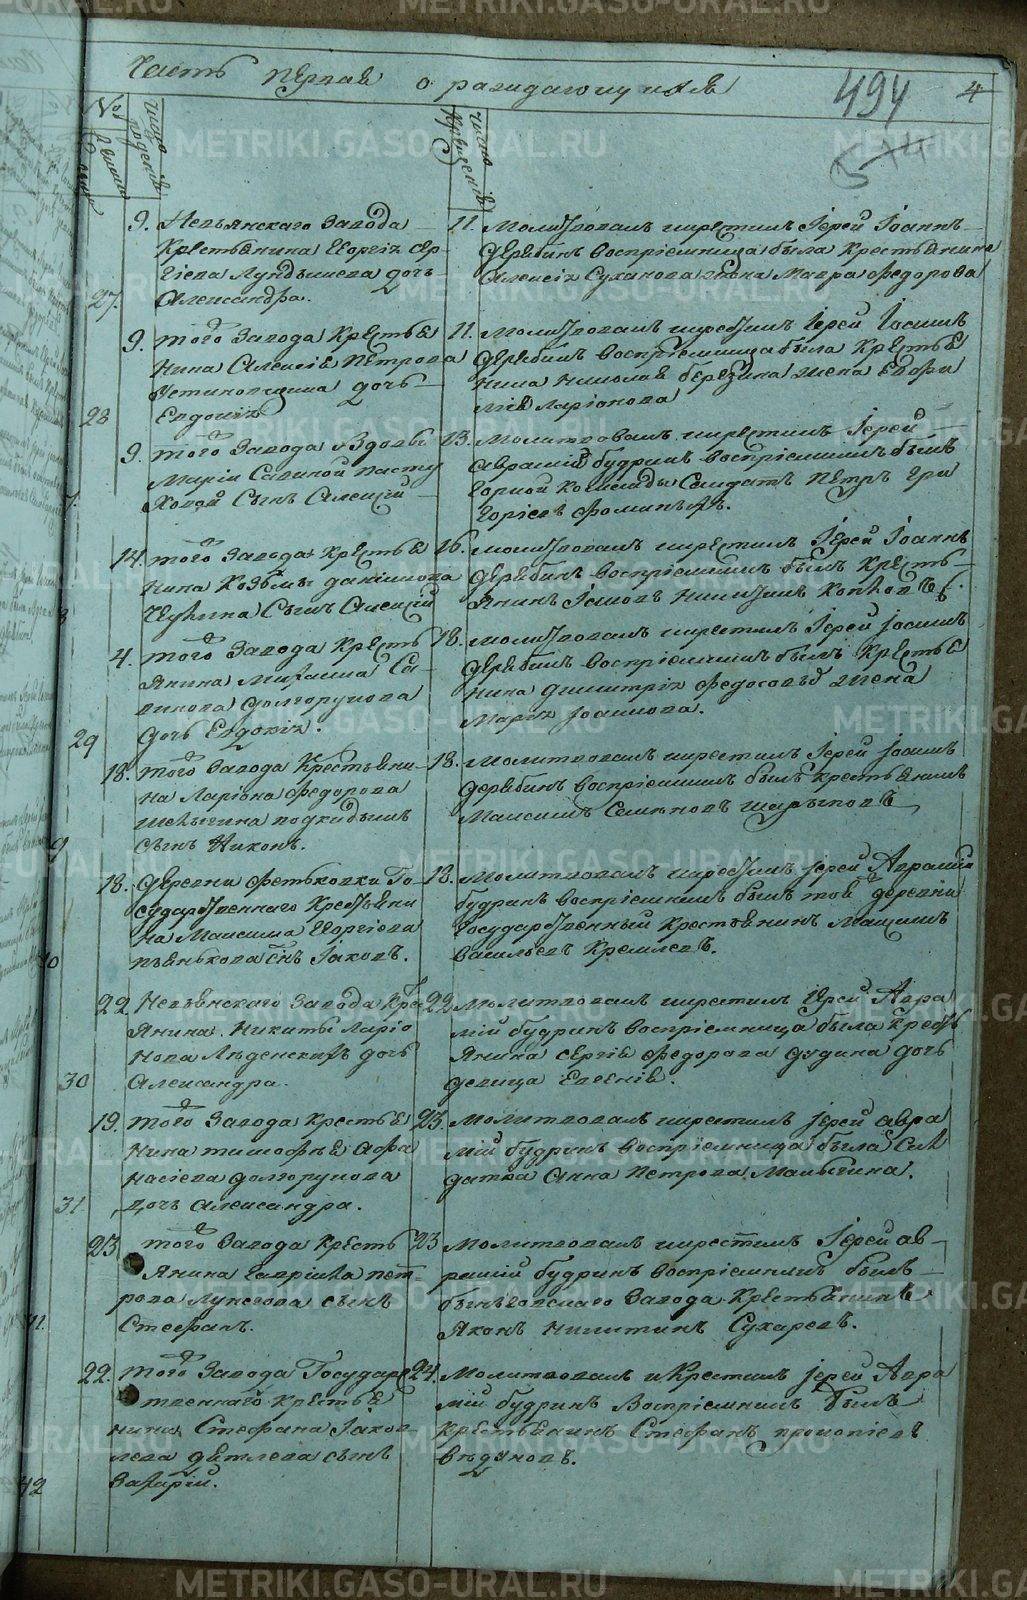 Часть первая о раждающихся
494
4
№
Число рождений
Число крещений
9. Невьянскаго Завода
Крестьянина Георгіа Сер
гіева Лундышева дочь
Александра.
27.
11. Молитвовалъ икрестилъ Іерей Іоаннъ
Дерябинъ воспріемница была крестьянина
Алексія Суханова жена Мавра Федорова
9. того Завода Крестья
нина Алексія Петрова
Устиновщикова дочь
Евдокіа
28
11. Молитвовалъ икрестилъ Іерей Іоаннъ
Дерябинъ воспріемница была Крестья
нина Николая Березина жена Евфи
мія Ларіонова
9. того Завода Вдовы
Маріи Савиной пасту
ховой Сынъ Алексій
7.
13. Молитвовалъ икрестилъ Іерей
Аврамій Будринъ воспріемникъ былъ
Горной Команды Солдатъ Петръ Гри
горіевъ Фоминыхъ.
14. того Завода Крестья
нина Козьмы Данилова
Сынъ Алексій
8
16. молитвовалъ икрестилъ Іерей Іоаннъ
Дерябинъ воспріемникъ былъ Кресть
янинъ Іаковъ Никитинъ
4. того Завода Кресть
янина Михаила Са
викова Долгорукова
дочь Евдокіа.
29
18. молитвовалъ икрестилъ Іерей Іоаннъ
Дерябинъ воспріемникъ былъ Крестья
нина Димитріа Федосовъ жена
Маріа Іоакимова.
18. того Завода Крестьяни
на Ларіона Федорова
подкидышъ
сынъ Никонъ.
9
18. Молитвовалъ икрестилъ Іерей Іоаннъ
Дерябинъ воспріемникъ былъ крестьянинъ
Максимъ Семеновъ Шарыповъ
18. деревни Фетьковки Го
сударственнаго Крестьяни
на Максима Георгіева
Пьянкова сынъ Іаковъ.
10
18. Молитвовалъ икрестилъ Іерей Аврамій
Будринъ воспріемникъ былъ той деревни
Государственный Крестьянинъ Максимъ
Васильевъ Кремлевъ.
22 Невьянскаго Завода Крест
янина Никиты Ларіо
нова дочь
Александра.
30
22 Молитвовалъ икрестилъ Іерей Авра
мій Будринъ воспріемница была Кресть
янина Сергія Федорова Дудина дочь
девица Евгенія.
19. того Завода Крестья
нина Тимофея Афа
насіева Долгорукова
дочь Александра.
31
23. Молитвовалъ икрестилъ Іерей Авра
мій Будринъ воспріемница была Сол
датка Анна Петрова Малыгина.
23 того Завода Кресть
янина Гавріила Пет
рова Лунегова сынъ
Стефанъ.
11.
23 Молитвовалъ икрестилъ Іерей Ав
рамій Будринъ воспріемникъ былъ
Быньговскаго Завода Крестьянинъ
Яковъ Никитинъ Сухаревъ.
22. того Завода Государс
твеннаго Крестья
нина Стефана Іаков
лева Детлева сынъ
Захарій.
12
24. Молитвовалъ и Крестилъ Іерей Авра
мій Будринъ Воспріемникъ былъ
Крестьянинъ Стефанъ Прокопіевъ
Ведуновъ.
METRIKI.GASO-URAL.RU